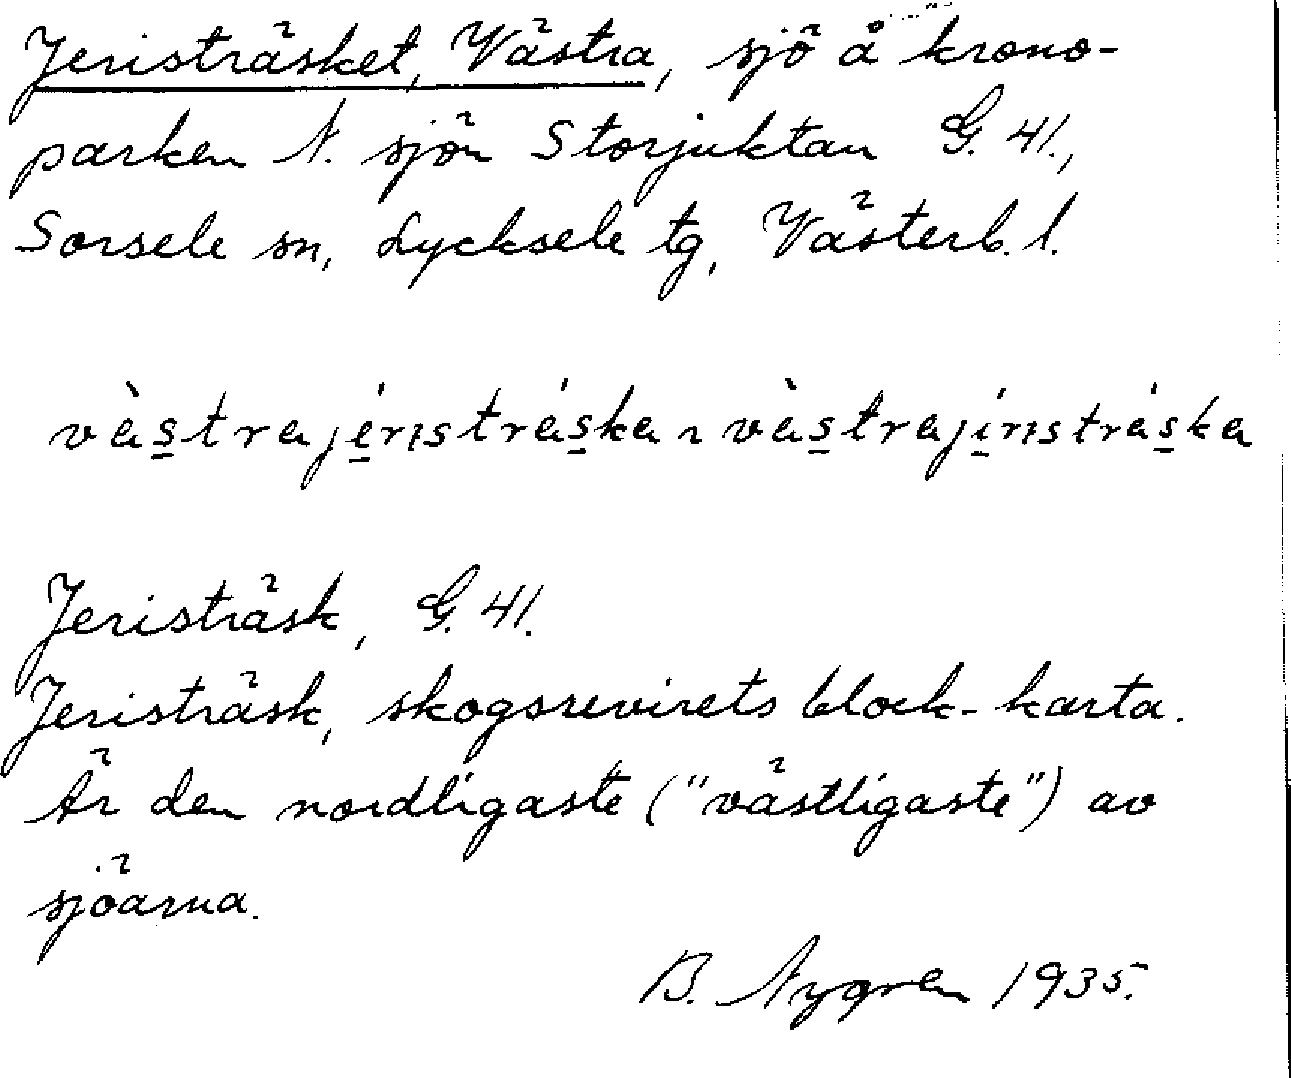 Jeristräsket, Västra, sjö å krono-
parken N. sjön Storjuktan G. 41.,
Sorsele sn, Lycksele tg, Västerb. l.
vàstrajéristráska ~ vàstrajíristráska
Jeristräsk, G. 41.
Jeristräsk, skogsrevirets block-karta.
Är den nordligaste ("västligaste") av
sjöarna.
B. Nygren 1935.